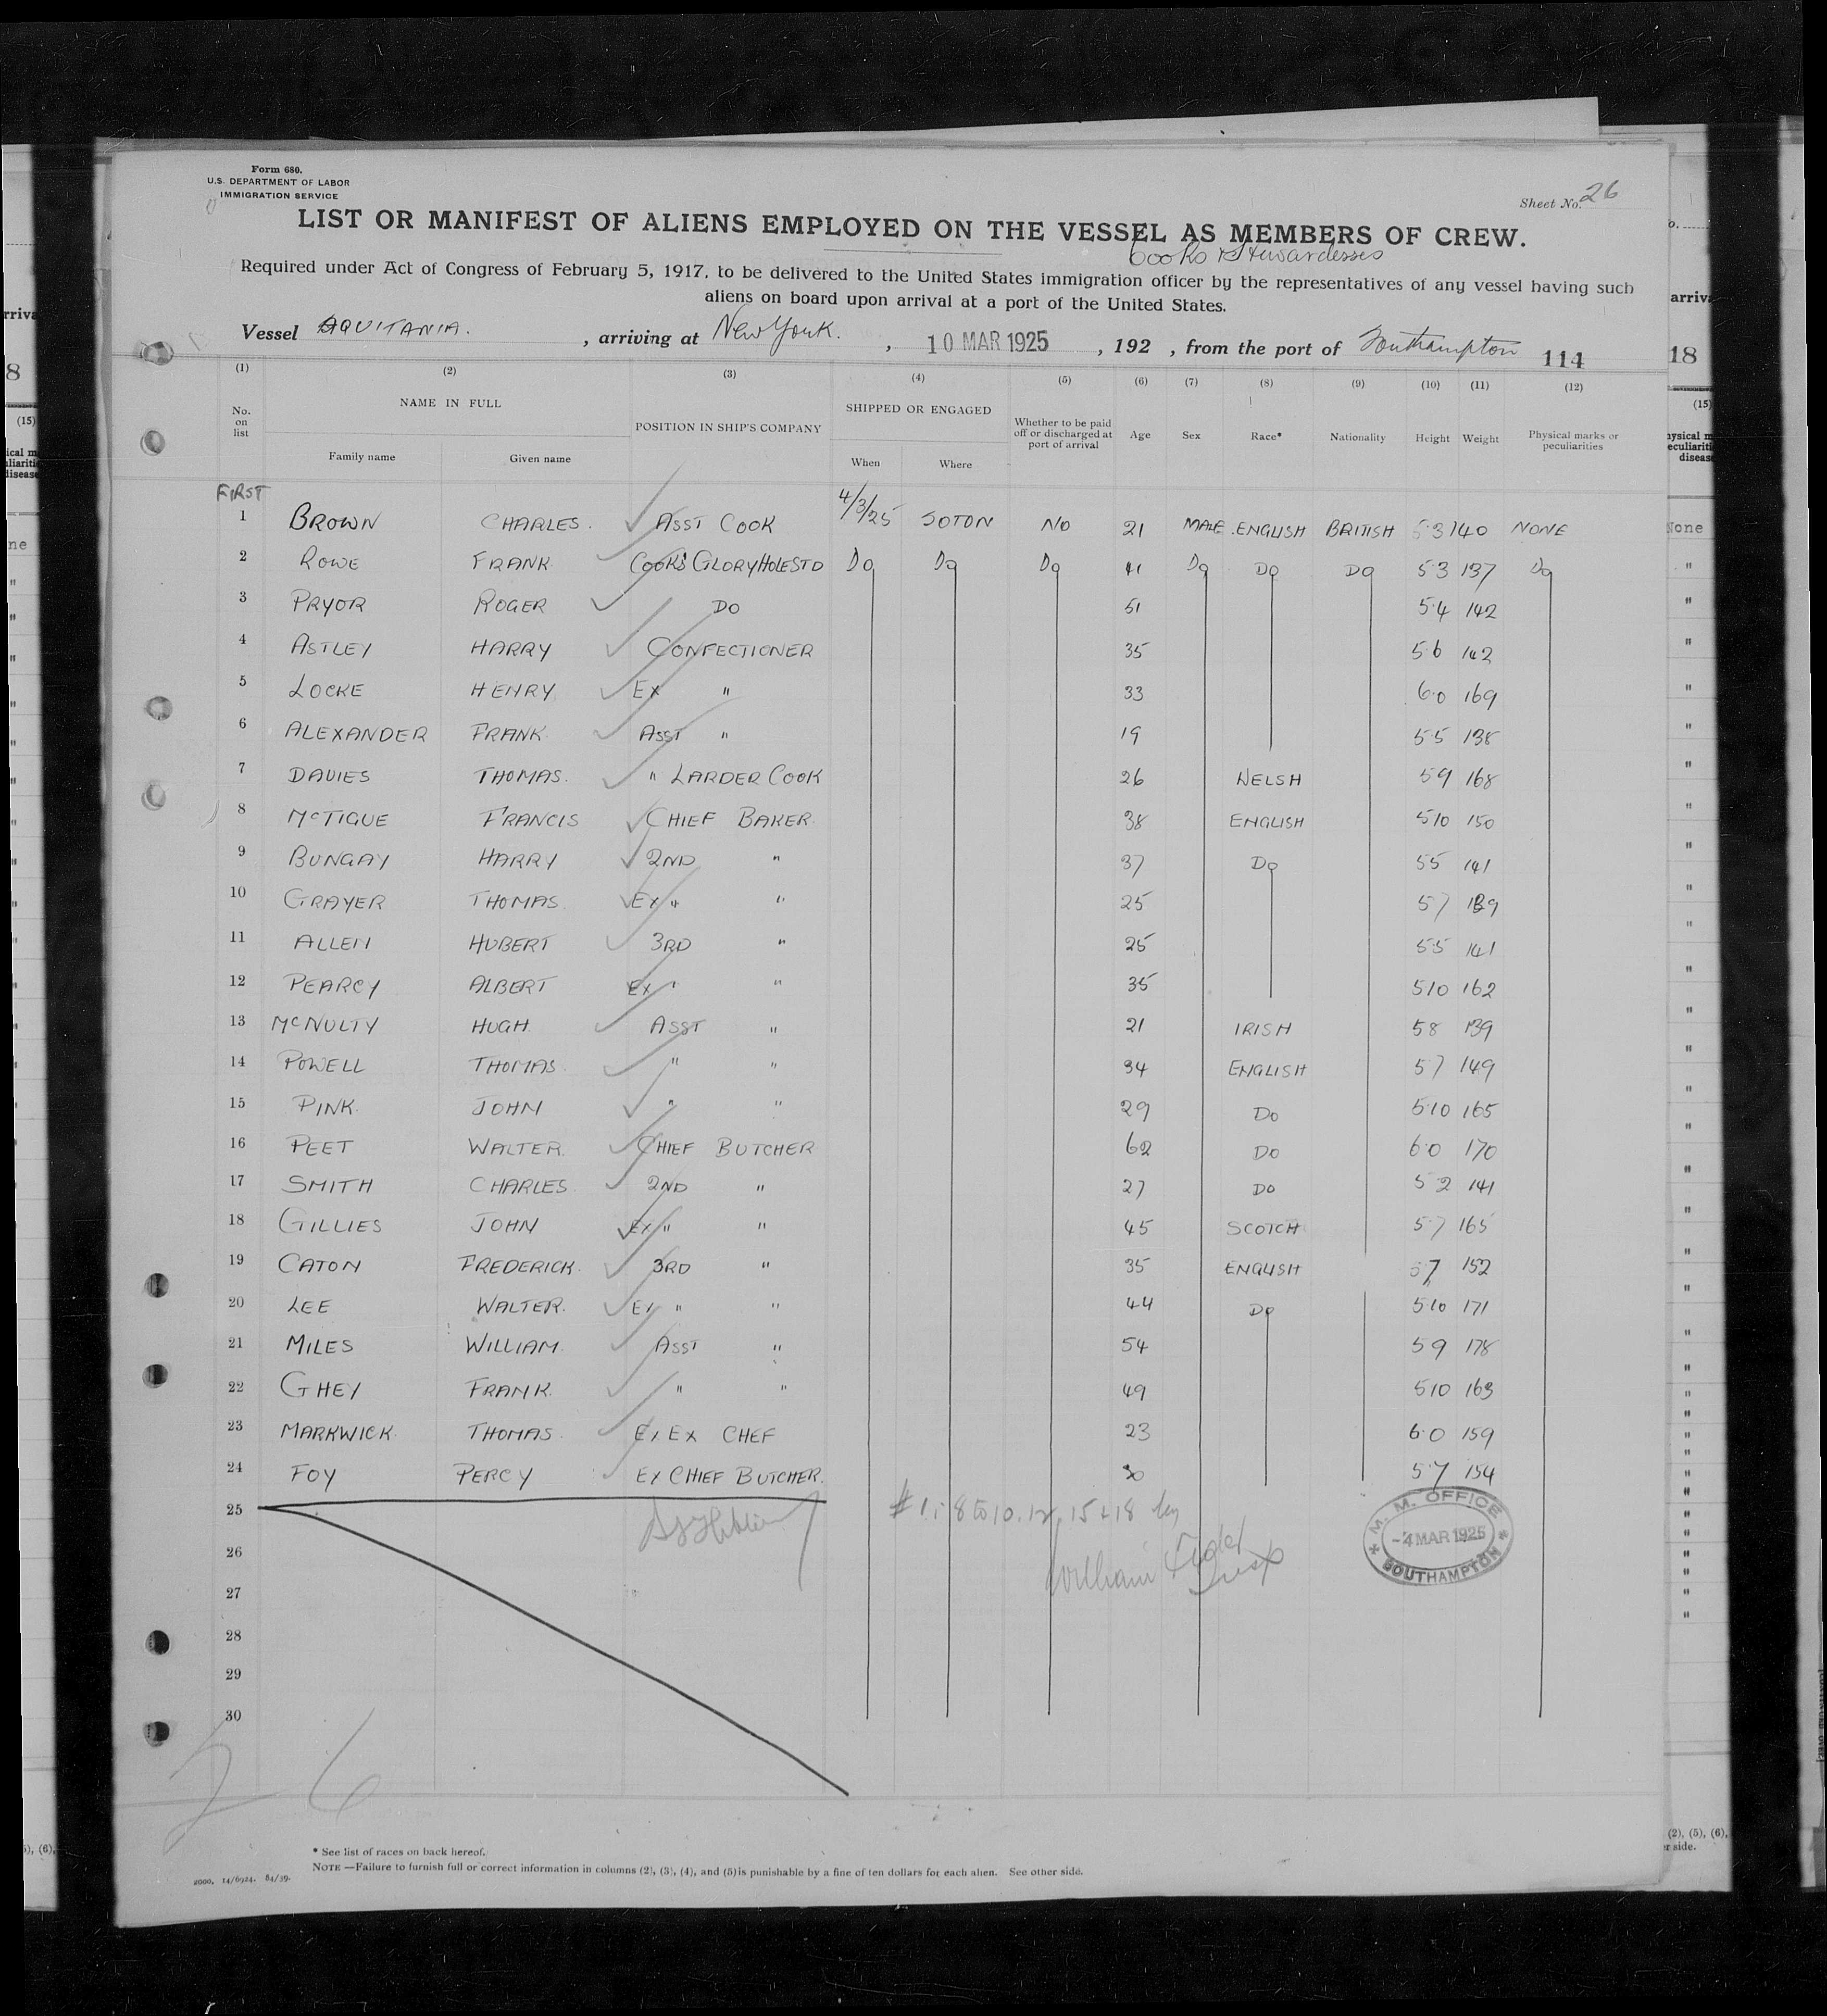 Form 680.
U.S. DEPARTMENT OF LABOR
IMMIGRATION SERVICE
Sheet No. 26
LIST OR MANIFEST OF ALIENS EMPLOYED ON THE VESSEL AS MEMBERS OF CREW.
Cooks & Stewardesses
Required under Act of Congress of February 5, 1917, to be delivered to the United States immigration officer by the representatives of any vessel having such
aliens on board upon arrival at a port of the United States.
Vessel AQUITANIA. , arriving at New York. , 10 MAR 1925 , 192 , from the port of Southampton 114
(1) (2) (3) (4) (5) (6) (7) (8) (9) (10) (11) (12)
No. on list NAME IN FULL Family name Given name POSITION IN SHIP'S COMPANY SHIPPED OR ENGAGED When Where Whether to be paid off or discharged at port of arrival Age Sex Race* Nationality Height Weight Physical marks or peculiarities
FIRST
1 BROWN CHARLES. ASST COOK 4/3/25 SOTON NO 21 MALE ENGLISH BRITISH 5 3 140 NONE
2 ROWE FRANK COOKS GLORYHOLE STD Do Do Do 41 Do Do Do 5 3 137 Do
3 PRYOR ROGER DO 51 5 4 142
4 ASTLEY HARRY CONFECTIONER 35 5 6 142
5 LOCKE HENRY EX " 33 6 0 169
6 ALEXANDER FRANK ASST " 19 5 5 138
7 DAVIES THOMAS. " LARDER COOK 26 WELSH 5 9 168
8 McTIGUE FRANCIS CHIEF BAKER 38 ENGLISH 5 10 150
9 BUNGAY HARRY 2ND " 37 Do 5 5 141
10 GRAYER THOMAS EX " " 25 5 7 139
11 ALLEN HUBERT 3RD " 25 5 5 141
12 PEARCY ALBERT EX " " 35 5 10 162
13 McNULTY HUGH ASST " 21 IRISH 5 8 139
14 POWELL THOMAS " " 34 ENGLISH 5 7 149
15 PINK JOHN " " 29 Do 5 10 165
16 PEET WALTER CHIEF BUTCHER 62 Do 6 0 170
17 SMITH CHARLES 2ND " 27 Do 5 2 141
18 GILLIES JOHN EX " " 45 SCOTCH 5 7 165
19 CATON FREDERICK 3RD " 35 ENGLISH 5 7 152
20 LEE WALTER. EX " " 44 Do 5 10 171
21 MILES WILLIAM ASST " 54 5 9 178
22 GHEY FRANK " " 49 5 10 163
23 MARKWICK THOMAS EX EX CHEF 23 6 0 159
24 FOY PERCY EX CHIEF BUTCHER. 30 5 7 154
25
# 1. 8 to 10. 12, 15 & 18
William
Insp
M. M. OFFICE
-4 MAR 1925
SOUTHAMPTON
26
27
28
29
30
26
* See list of races on back hereof.
NOTE —Failure to furnish full or correct information in columns (2), (3), (4), and (5) is punishable by a fine of ten dollars for each alien. See other side.
2000. 14/6924. 84/39.